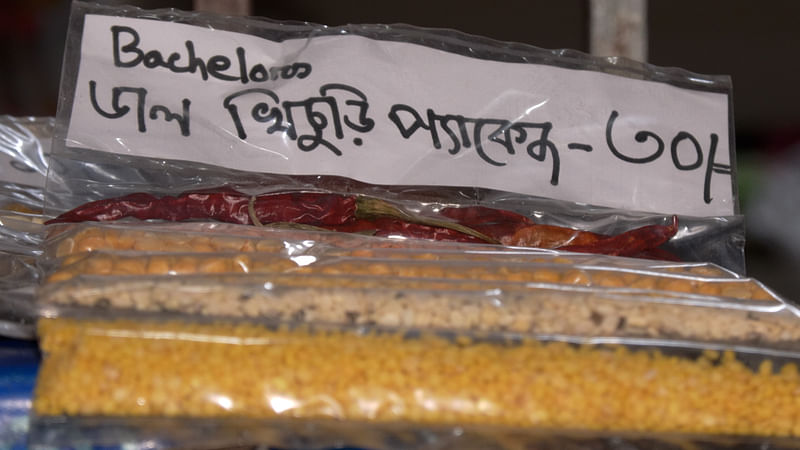 Bachelors
ডাল খিচুড়ি প্যাকেজ - ৩০/-